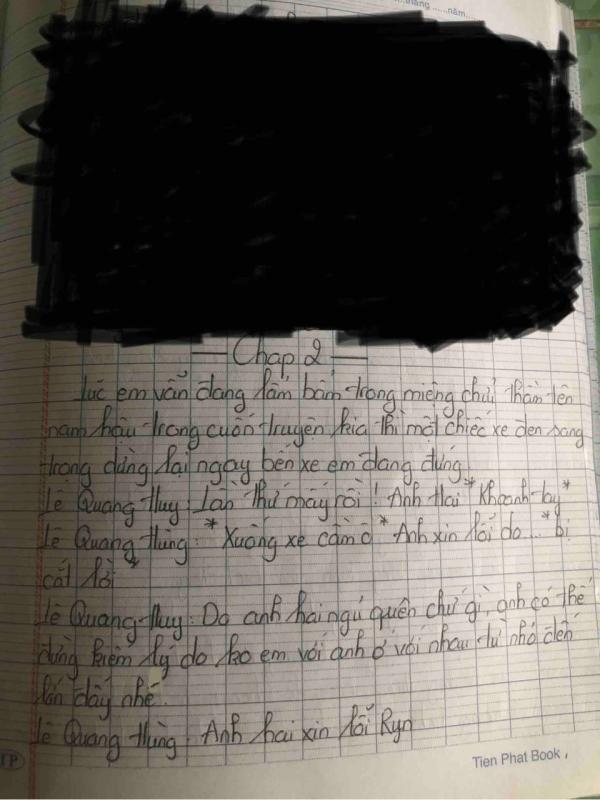 tháng ......năm....
— Chap 2 —
Lúc em vẫn đang lẩm bẩm trong miệng chửi thầm tên
nam hậu trong cuốn truyện kia thì một chiếc xe đen sang
trọng dừng lại ngay bên xe em đang đứng.
Lê Quang Huy: Lần thứ mấy rồi! Anh Hai *Khoanh tay*
Lê Quang Hùng: *Xuống xe cầm ô* Anh xin lỗi do... *bị
cắt lời*
Lê Quang Huy: Do anh hai ngủ quên chứ gì, anh có thể
dừng kiếm lý do ko em với anh ở với nhau từ nhỏ đến
lớn đấy nhé.
Lê Quang Hùng: Anh hai xin lỗi Ryn
TP
Tien Phat Book